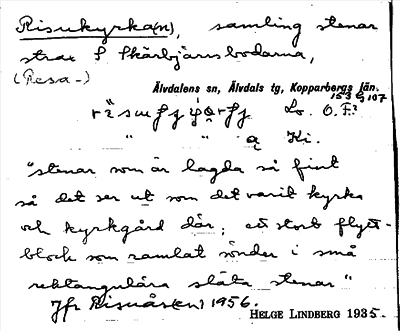 Risukyrka(n), samling stenar
strax S Skärbjörnsbodarna,
(Resa-)
Älvdalens sn, Älvdals tg, Kopparbergs län.
Lo. O. F.
" " Ki.
"stenar som är lagda så fint
så det ser ut som det varit kyrka
och kyrkgård där; ett stort flytt-
block som ramlat sönder i små
rektangulära släta stenar"
Jfr Risuåsen 1956.
HELGE LINDBERG 1935.